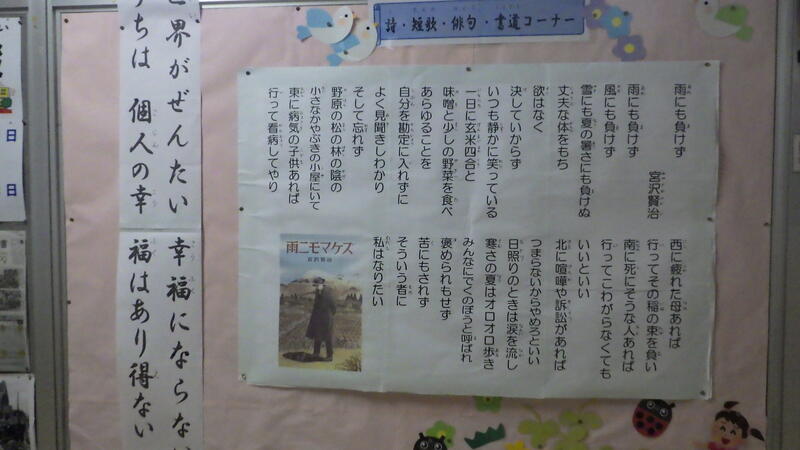 詩・短歌・俳句・書道コーナー
雨にも負けず
宮沢賢治
雨にも負けず
風にも負けず
雪にも夏の暑さにも負けぬ
丈夫な体をもち
欲はなく
決していからず
いつも静かに笑っている
一日に玄米四合と
味噌と少しの野菜を食べ
あらゆることを
自分を勘定に入れずに
よく見聞きしわかり
そして忘れず
野原の松の林の陰の
小さなかやぶきの小屋にいて
東に病気の子供あれば
行って看病してやり
西に疲れた母あれば
行ってその稲の束を負い
南に死にそうな人あれば
行ってこわがらなくても
いいといい
北に喧嘩や訴訟があれば
つまらないからやめろといい
日照りのときは涙を流し
寒さの夏はオロオロ歩き
みんなにでくのぼうと呼ばれ
褒められもせず
苦にもされず
そういう者に
私はなりたい
雨ニモマケズ
宮沢賢治
世界がぜんたい 幸福にならない
うちは 個人の幸福はあり得ない
日
日